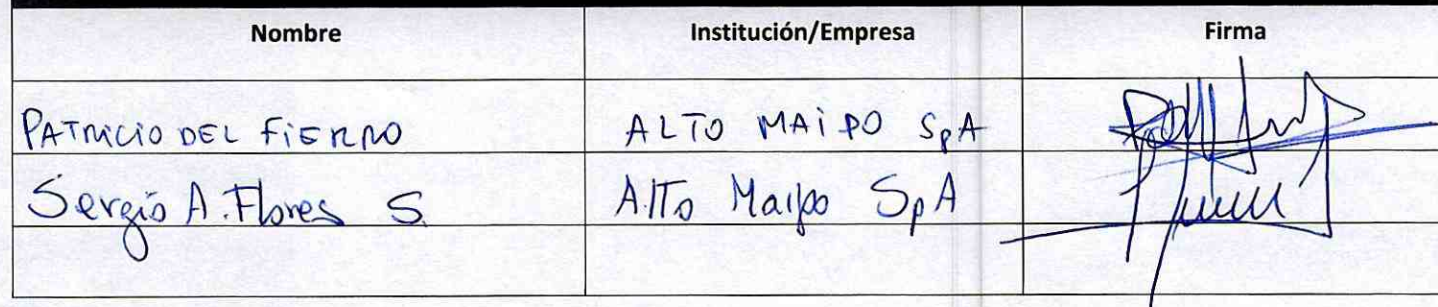 Nombre Institución/Empresa Firma
PATRICIO DEL FIERRO ALTO MAIPO SpA
Sergio A. Flores S. Alto Maipo SpA